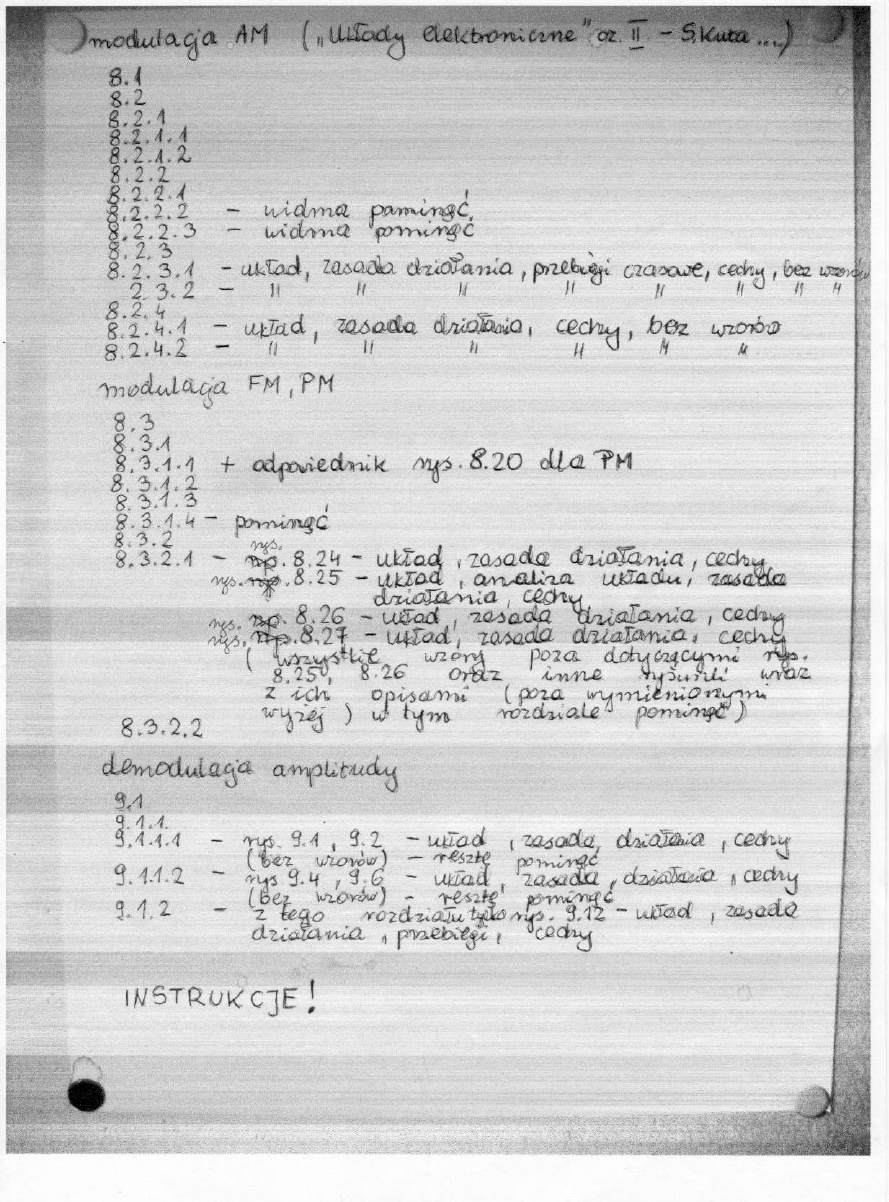 modulacja AM ("Układy elektroniczne" cz. II - S. Kuta ...)
8.1
8.2
8.2.1
8.2.1.1
8.2.1.2
8.2.2
8.2.2.1
8.2.2.2 - widma pominąć
8.2.2.3 - widma pominąć
8.2.3
8.2.3.1 - układ, zasada działania, przebiegi czasowe, cechy, bez wzorów
2.3.2 - " " " " " " " "
8.2.4
8.2.4.1 - układ, zasada działania, cechy, bez wzorów
8.2.4.2 - " " " " " "
modulacja FM, PM
8.3
8.3.1
8.3.1.1 + odpowiednik rys. 8.20 dla PM
8.3.1.2
8.3.1.3
8.3.1.4 - pominąć
8.3.2
8.3.2.1 - rys. 8.24 - układ, zasada działania, cechy
rys. 8.25 - układ, analiza układu, zasada
działania, cechy
rys. 8.26 - układ, zasada działania, cechy
rys. 8.27 - układ, zasada działania, cechy
(wszystkie wzory poza dotyczącymi rys.
8.25, 8.26 oraz inne rysunki wraz
z ich opisami (poza wymienionymi
wyżej) w tym rozdziale pominąć)
8.3.2.2
demodulacja amplitudy
9.1
9.1.1.
9.1.1.1 - rys. 9.1, 9.2 - układ, zasada działania, cechy
(bez wzorów) - resztę pominąć
9.1.1.2 - rys 9.4, 9.6 - układ, zasada, działania, cechy
(bez wzorów) - resztę pominąć
9.1.2 - z tego rozdziału tylko rys. 9.12 - układ, zasada
działania, przebiegi, cechy
INSTRUKCJE!